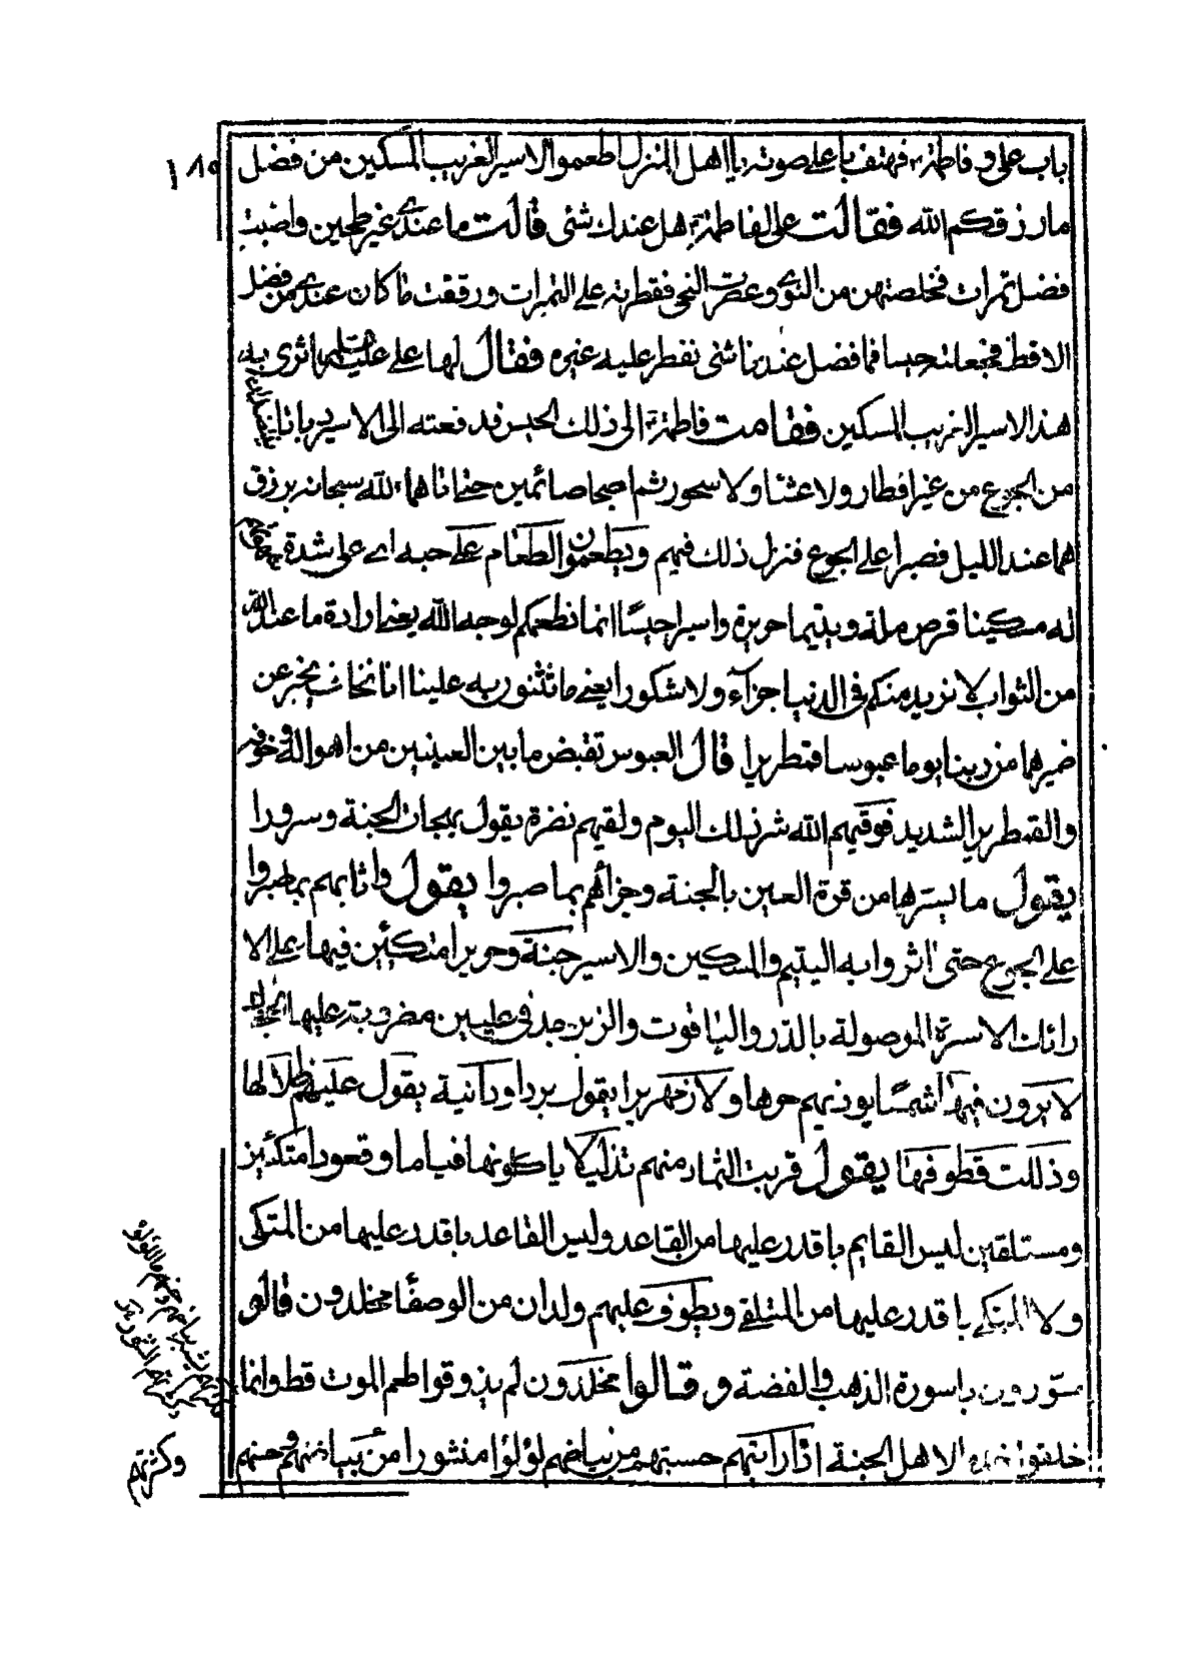 ١٨٥
باب على وفاطمة فهتف باعلى صوته يا اهل المنزل اطعموا الاسير الغريب المسكين من فضل
ما رزقكم الله فقالت على لفاطمة هل عندك شئ قالت ما عندى غير طحين واضبت
فضل تمرات فخلصتهن من النوى وعصرت النحى فقطرته على التمرات ورققت ما كان عندى من فضل
الاقط فجعلته حيسا فما فضل عندنا شئ نفطر عليه غيره فقال لها على عليهما اثرى به
هذا الاسير الغريب المسكين فقامت فاطمة الى ذلك الحيس فدفعته الى الاسير وباتا
من الجوع من غير افطار ولا عشا ولا سحور ثم اصبحا صائمين حتى اتاهما الله سبحانه برزق
هما عند الليل فصبرا على الجوع فنزل ذلك فيهم ويطعمون الطعام على حبه اى على شدة
له مسكينا قرص ملة ويتيما حريرة واسيرا حيسًا انما نطعمكم لوجه الله يعنى ارادة ما عند الله
من الثواب لا نريد منكم فى الدنيا جزآء ولا شكورا يعنى ما تثنوربه علينا انا نخاف يخبر عن
ضميرهما من ربنا يوما عبوسا قمطريرا قال العبوس تقبض ما بين العينين من اهواله وخوفه
والقمطرير الشديد فوقيهم الله شر ذلك اليوم ولقيهم نضرة يقول بهجات الجنة وسرورا
يقول ما يسترها من قرة العين بالجنة وجزاهم بما صبروا يقول واثابهم بما صبروا
على الجوع حتى اثروا به اليتيم والمسكين والاسير جنة وحريرا متكئين فيها على الا
رائك الاسرة الموصولة بالدر والياقوت والزبرجد فى طيبين مضروبة عليها الحجال
لا يرون فيها شمسًا يوذيهم حرها ولا زمهريرا يقول برد اودانية يقول عليهم ظلالها
وذللت قطوفها يقول قربت الثمار منهم تذليلا ياكلونها قياما وقعودا متكئين
ومستلقين ليس القايم باقدر عليها من القاعد وليس القاعد باقدر عليها من المتكى
ولا المتكى باقدر عليها من المتلقى ويطوف عليهم ولدان من الوصفا مخلدون قال هى
ستورون باسورة الذهب والفضة وقالوا مخلدون لم يذوقوا طعم الموت قط وانما
خلقوا خدما لاهل الجنة اذا رايتهم حسبتهم من بياضهم لؤلؤا منثورا من بياضهم وحسنهم
وكثرتهم